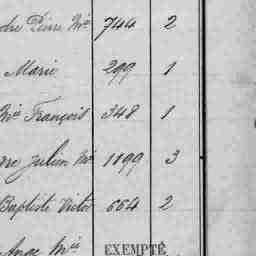 dre Pierre Mie 744 2
Marie 299 1
Mie François 348 1
dre Julien Mie 1199 3
Baptiste Victor 664 2
Ange Mie EXEMPTÉ